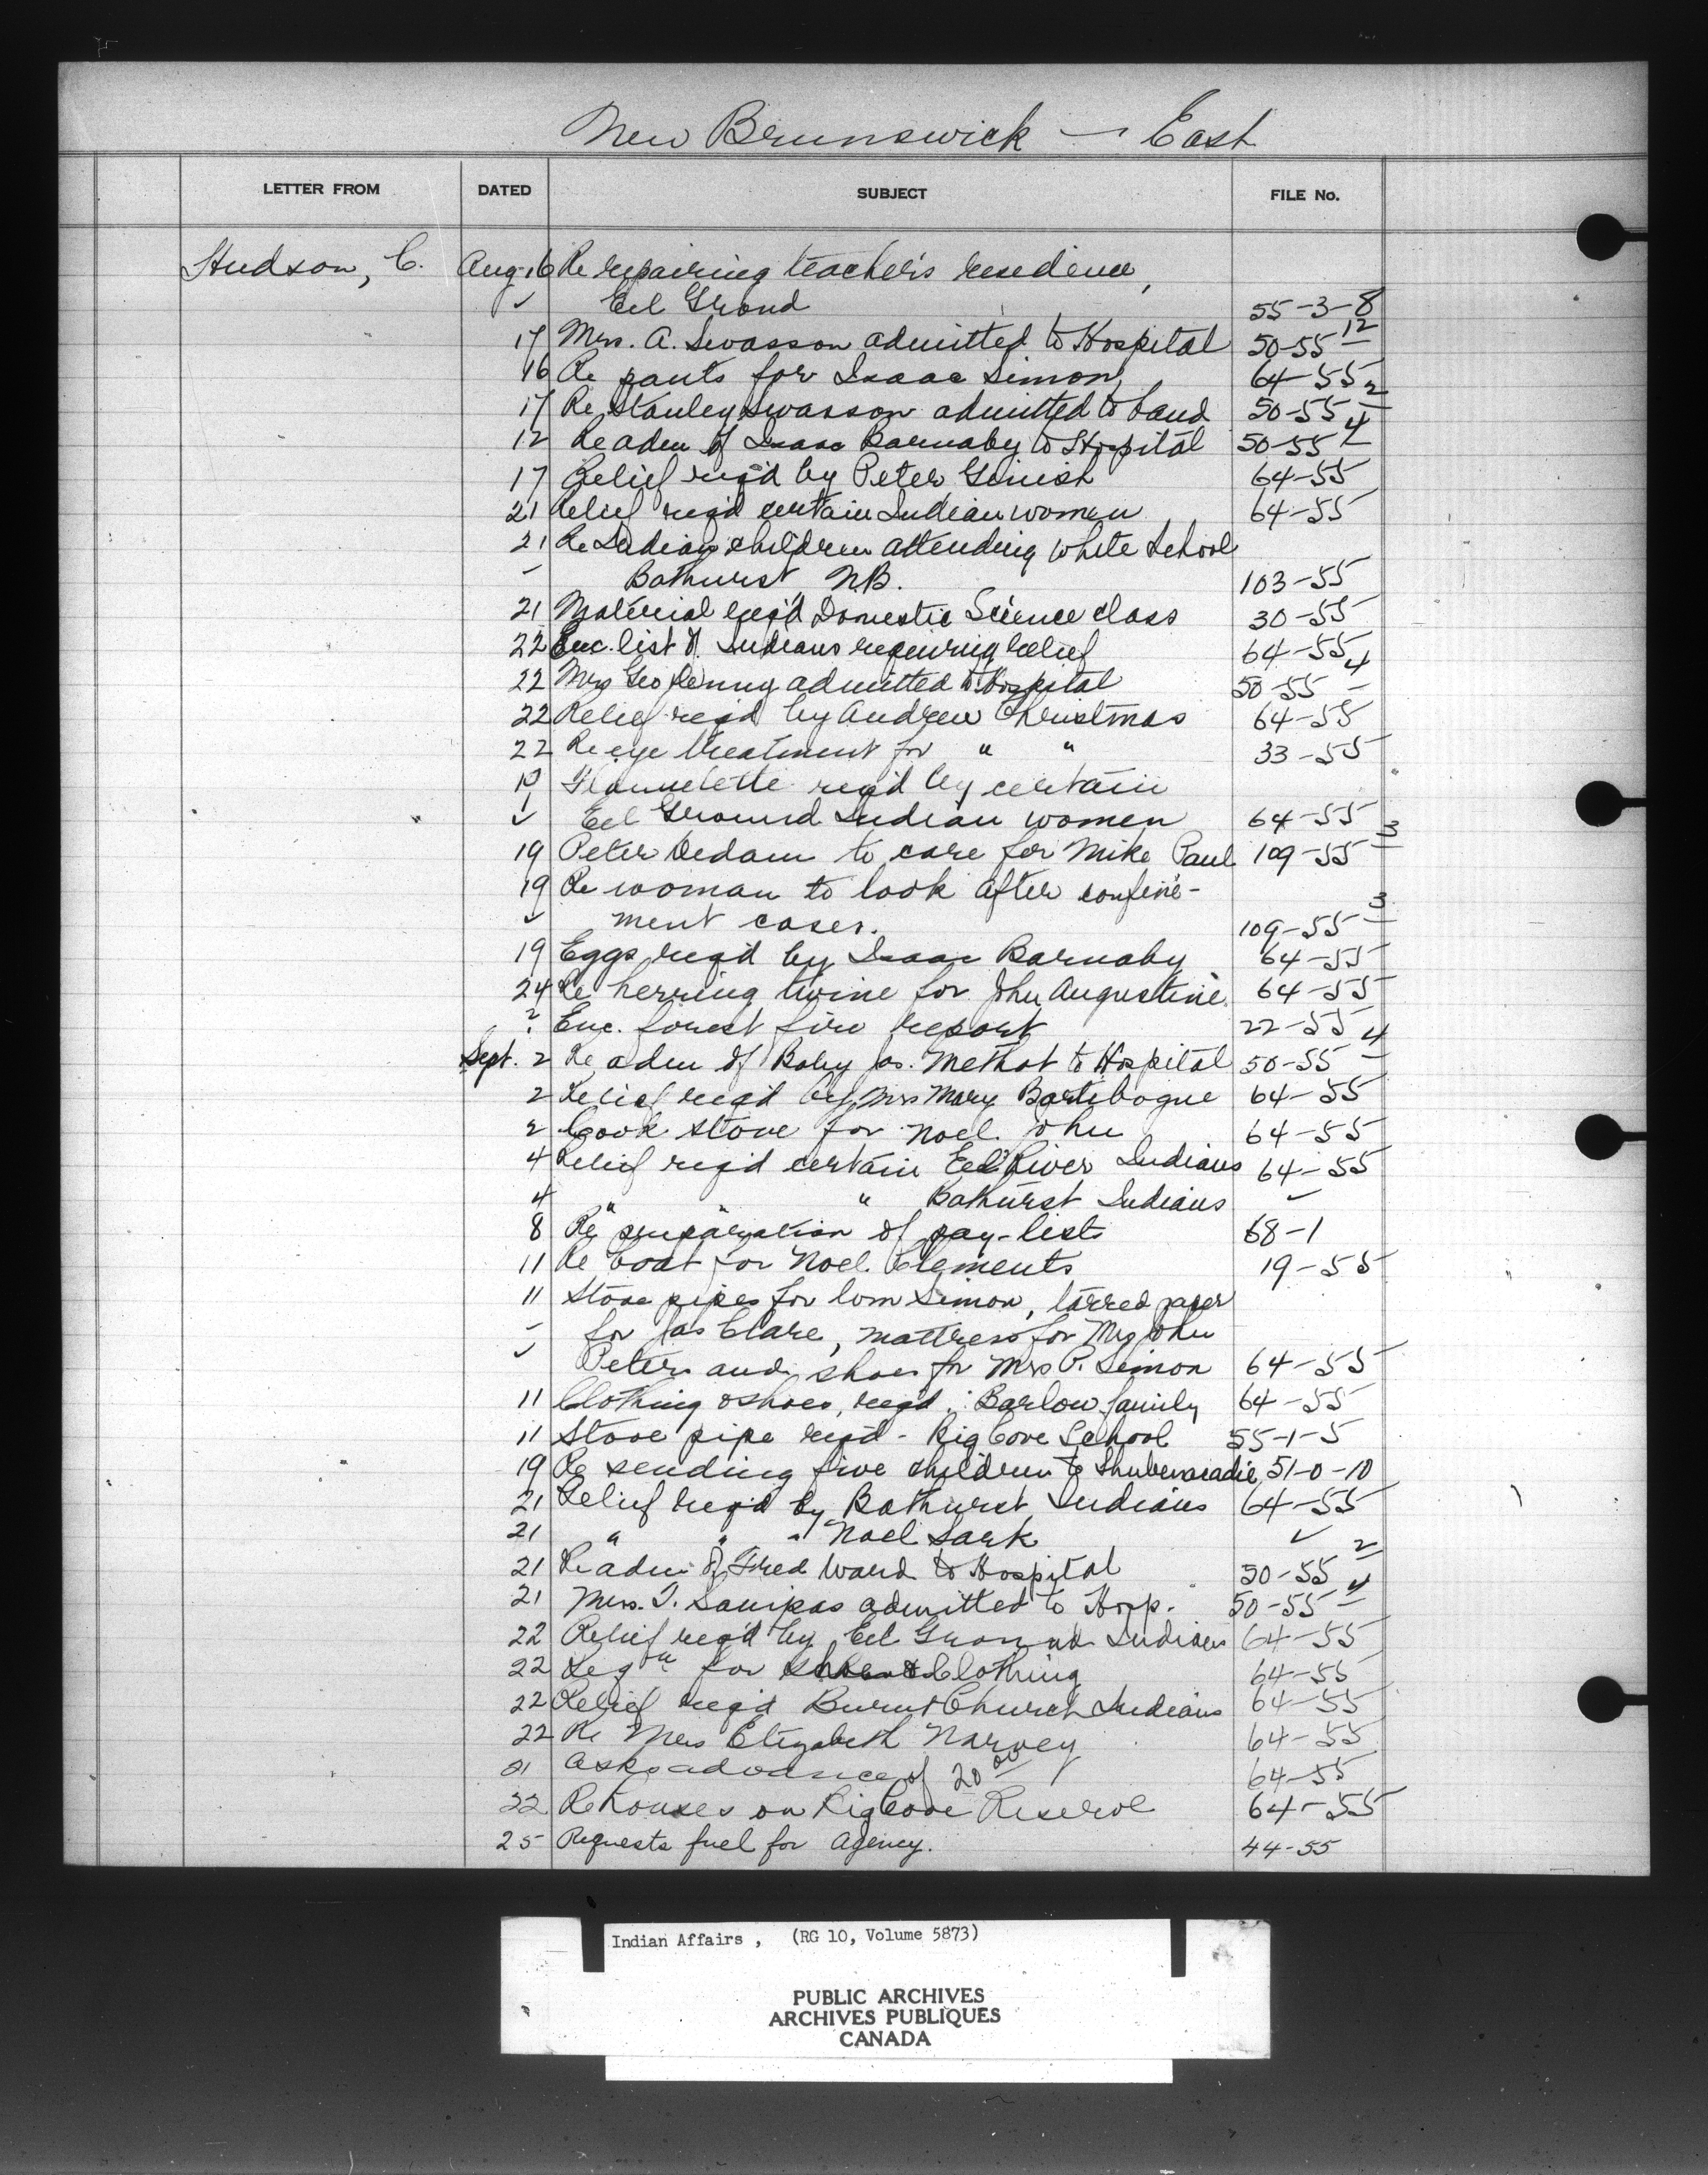 New Brunswick — East
LETTER FROM DATED SUBJECT FILE No.
Hudson, C. Aug. 16 Re repairing teacher's residence,
✓ Eel Grond 55-3-8
17 Mrs. A. Swasson admitted to Hospital 50-55 12
16 Re pants for Isaac Simon 64-55
17 Re Stanley Swasson admitted to band 50-55 2
12 Re adm of Isaac Barnaby to Hospital 50-55 4
17 Relief req'd by Peter Ginish 64-55
21 Relief req'd certain Indian women 64-55
21 Re Indian children attending White School
Bathurst N.B. 103-55
21 Material req'd Domestic Science class 30-55
22 Enc. list of Indians requiring relief 64-55
22 Mrs Geo admitted to Hospital 50-55 4
22 Relief req'd by Andrew Christmas 64-55
22 Re eye treatment for " " 33-55
Flannelette req'd by certain
✓ Eel Ground Indian women 64-55
19 Peter Dedam to care for Mike Paul 109-55 3
19 Re woman to look after confine-
✓ ment cases. 109-55 3
19 Eggs req'd by Isaac Barnaby 64-55
24 Re herring twine for John Augustine 64-55
? Enc. forest fire report 22-55
Sept. 2 Re adm of Baby Jos. Methot to Hospital 50-55 4
2 Relief req'd by Mrs Mary Bartibogue 64-55
2 Cook stove for Noel John 64-55
4 Relief req'd certain Eel River Indians 64-55
4 " " " Bathurst Indians ✓
8 Re preparation of pay-lists 68-1
11 Re boat for Noel Clements 19-55
11 Stove pipes for Tom Simon, tarred paper
for Jas Clare, mattress for Mrs John
✓ Peter and shoes for Mrs P. Simon 64-55
11 Clothing & shoes, req'd. Barlow family 64-55
11 Stove pipe req'd - Big Cove School 55-1-5
19 Re sending five children to Shubenacadie 51-0-10
21 Relief req'd by Bathurst Indians 64-55
21 " " " Noel Sark ✓
21 Re adm of Fred Ward to Hospital 50-55 2
21 Mrs. T. Sanipas admitted to Hosp. 50-55 4
22 Relief req'd by Eel Ground Indians 64-55
22 Reqn for Clothing 64-55
22 Relief req'd Burnt Church Indians 64-55
22 Re Mrs Elizabeth Narvey 64-55
21 Asks advance of 20 00 64-55
22 Re houses on Big Cove Reserve 64-55
25 Requests fuel for Agency. 44-55
Indian Affairs , (RG 10, Volume 5873)
PUBLIC ARCHIVES
ARCHIVES PUBLIQUES
CANADA